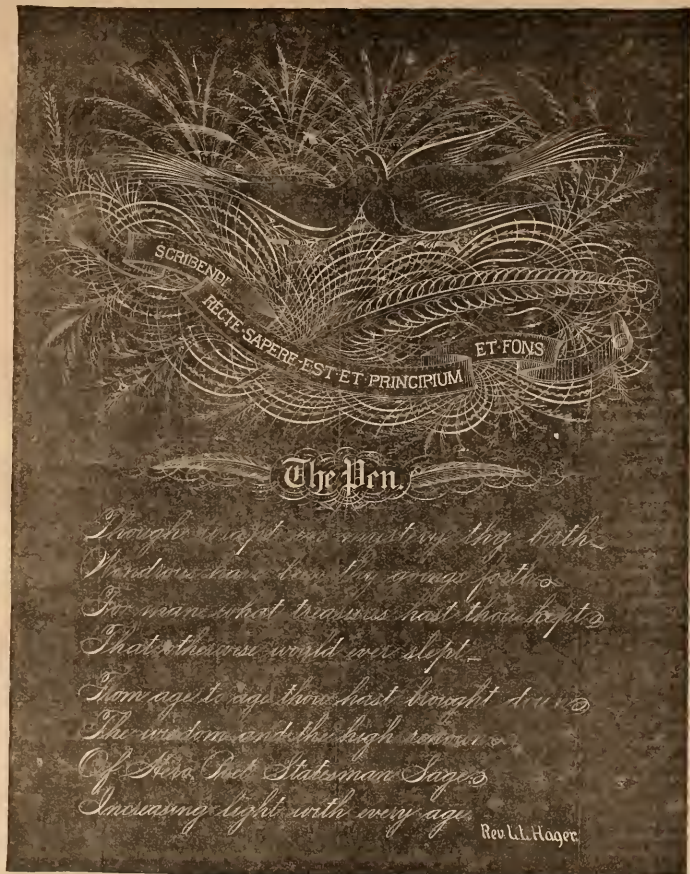 SCRIBENDI
RECTE·SAPERE·EST·ET·PRINCIPIUM
ET·FONS
The Pen.
Though wrapt in mystery thy birth
Wondrous have been thy goings forth
For man what treasures hast thou kept
That otherwise would ever slept
From age to age thou hast brought down
The wisdom and the high renown
Of Hero Poet Statesman Sage
Increasing light with every age.
Rev. L.L. Hager.